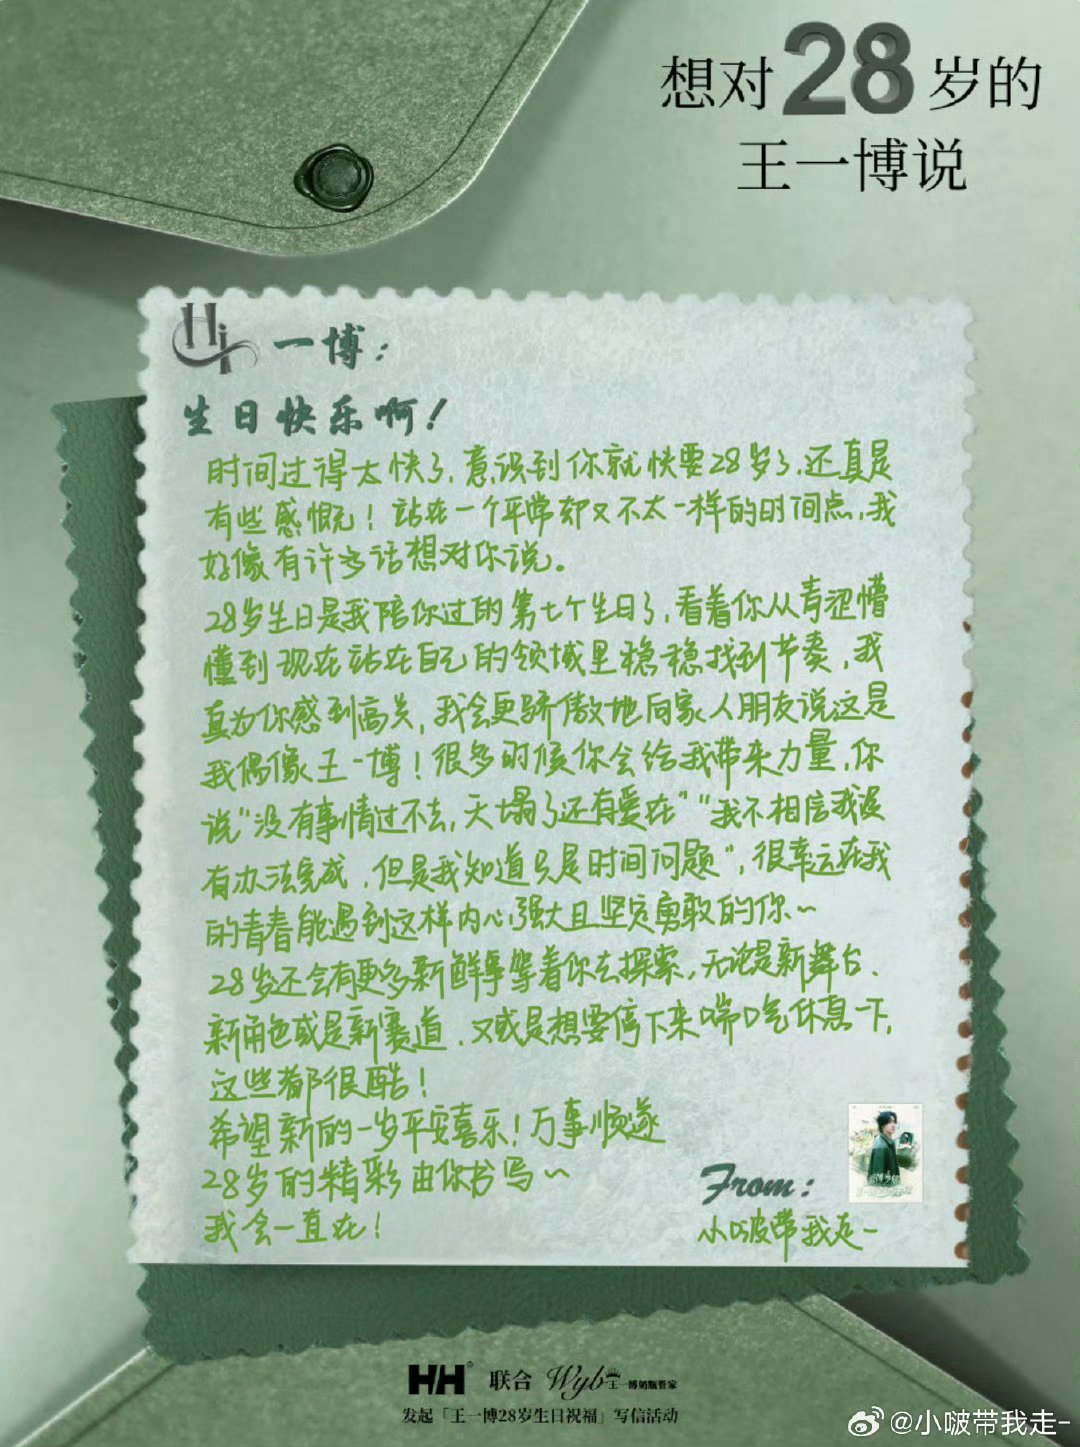 想对28岁的
王一博说
Hi 一博：
生日快乐啊！
时间过得太快了，意识到你就快要28岁了，还真是
有些感慨！站在一个平常却又不太一样的时间点，我
好像有许多话想对你说。
28岁生日是我陪你过的第七个生日了，看着你从青涩懵
懂到现在站在自己的领域里稳稳找到节奏，我
真为你感到高兴，我会更骄傲地向家人朋友说这是
我偶像王一博！很多时候你会给我带来力量，你
说“没有事情过不去，天塌了还有爱在”“我不相信我没
有办法完成，但是我知道只是时间问题”，很幸运在我
的青春能遇到这样内心强大且坚定勇敢的你~
28岁还会有更多新鲜事等着你去探索，无论是新舞台、
新角色或是新赛道，又或是想要停下来喘口气休息一下，
这些都很酷！
希望新的一岁平安喜乐！万事顺遂
28岁的精彩由你书写~
我会一直在！
From:
小啵带我走-
HH® 联合 Wyb 王一博奶瓶管家
发起「王一博28岁生日祝福」写信活动
@小啵带我走-